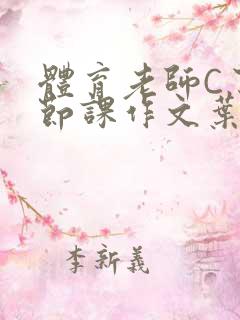 體育老師C
節課作文葉
李新義